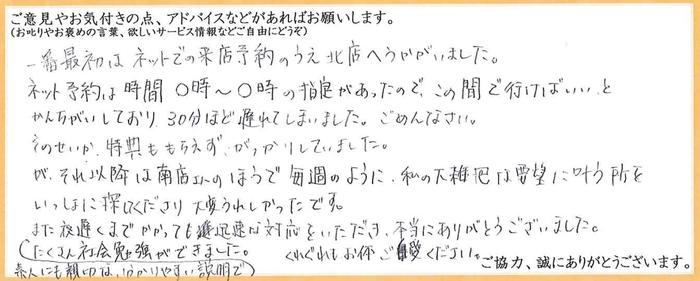 ご意見やお気付きの点、アドバイスなどがあればお願いします。
(お叱りやお褒めの言葉、欲しいサービス情報などご自由にどうぞ)
一番最初はネットでの来店予約のうえ北店へうかがいました。
ネット予約は時間 〇時〜〇時の指定があったので、この間で行けばいいと
かんちがいしており 30分ほど遅れてしまいました。ごめんなさい。
そのせいか、特典ももらえず、がっかりしていました。
が、それ以降は南店さんのほうで毎週のように、私の大雑把な要望に叶う所を
いっしょに探してくださり 大変うれしかったです。
また夜遅くまでかかっても迅速な対応をいただき、本当にありがとうございました。
(たくさん社会勉強ができました。 くれぐれもお体ご自愛ください。
素人にも親切な、分かりやすい説明で) ご協力、誠にありがとうございます。